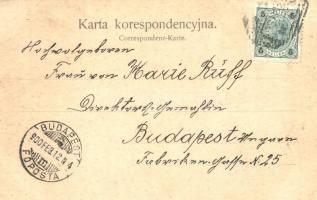 Karta korespondencyjna.
Correspondenz-Karte.
Hochwolgeboren
Frau von Marie Rüff
Direktors-Gemahlin
Budapest Ungarn
Fabriken-Gasse N. 25
BUDAPEST
FŐPOSTA